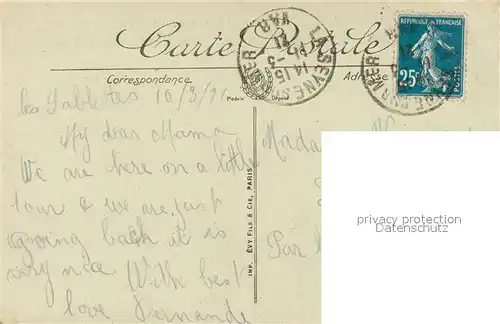 Carte Postale
Correspondance
Adresse
RÉPUBLIQUE FRANÇAISE
25c
POSTES
LA SEYNE SUR MER
VAR
14 15
les Sablettes 10/3/21
My dear Mama
We are here on a little
tour & we are just
going back it is
very nice With best
love Fernande
Madame
Par
IMP. ÉVY FILS & CIE, PARIS
privacy protection
Datenschutz